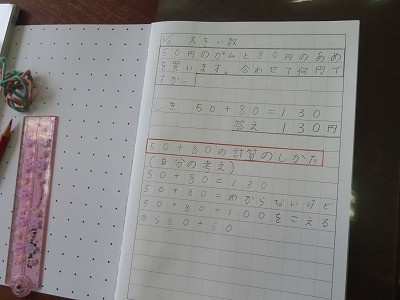 大きい数
50円のガムと80円のあめ
を買います。合わせて何円で
すか。
しき 50+80=130
答え 130円
50+80の計算のしかた
(自分の考え)
50+80=130
50+80=わからないけど
50+80=100をこえる
から50+50